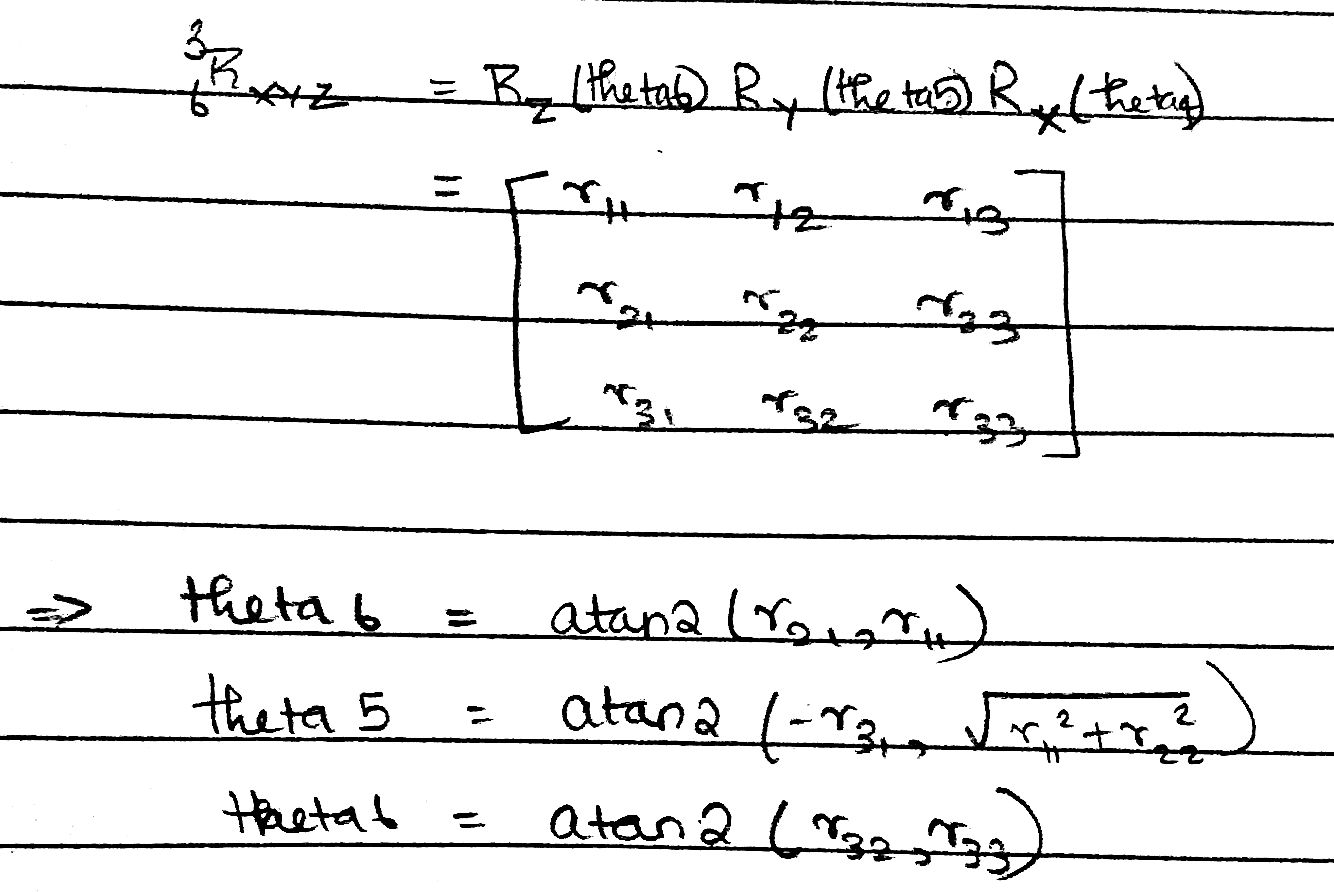 ³₆R XYZ = R_Z (theta6) R_Y (theta5) R_X (theta4)
= [ r₁₁ r₁₂ r₁₃
r₂₁ r₂₂ r₂₃
r₃₁ r₃₂ r₃₃ ]
=> theta 6 = atan2 (r₂₁, r₁₁)
theta 5 = atan2 (-r₃₁, √(r₁₁² + r₂₂²))
theta 6 = atan2 (r₃₂, r₃₃)